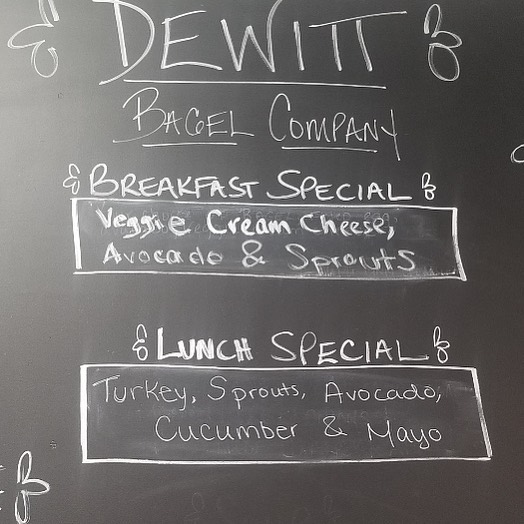 DEWITT
BAGEL COMPANY
BREAKFAST SPECIAL
Veggie Cream Cheese,
Avocado & Sprouts
LUNCH SPECIAL
Turkey, Sprouts, Avocado,
Cucumber & Mayo